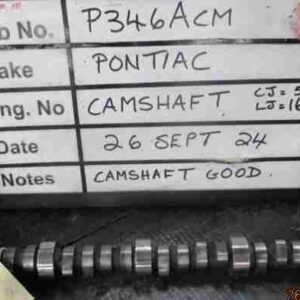 b No. P346ACM
ake PONTIAC
ng. No CAMSHAFT CJ=5
LJ=16
Date 26 SEPT 24
Notes CAMSHAFT GOOD.